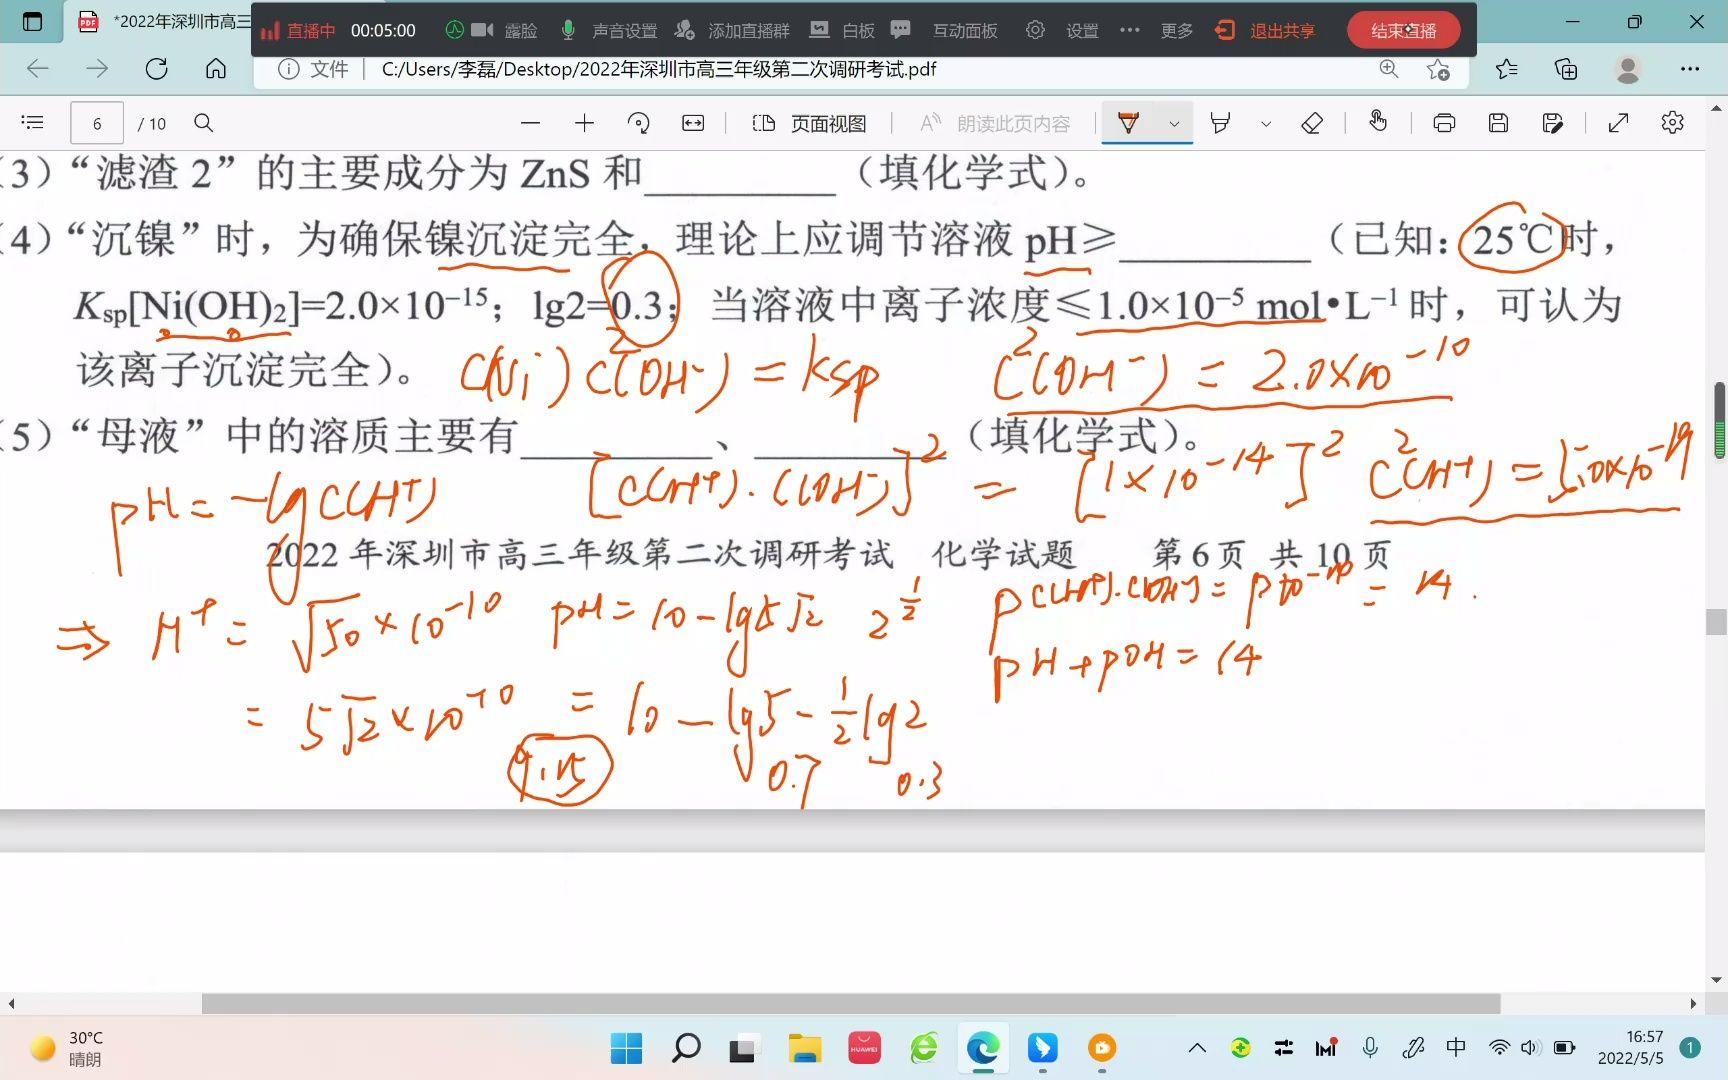 *2022年深圳市高三
直播中 00:05:00 露脸 声音设置 添加直播群 白板 互动面板 设置 更多 退出共享 结束直播
文件 C:/Users/李磊/Desktop/2022年深圳市高三年级第二次调研考试.pdf
6 / 10 页面视图 朗读此页内容
(3)“滤渣 2”的主要成分为 ZnS 和________(填化学式)。
(4)“沉镍”时,为确保镍沉淀完全,理论上应调节溶液 pH≥________(已知:25℃时,
Ksp[Ni(OH)₂]=2.0×10⁻¹⁵;lg2=0.3;当溶液中离子浓度≤1.0×10⁻⁵ mol•L⁻¹时,可认为
该离子沉淀完全)。 C(Ni) C²(OH⁻) = Ksp C²(OH⁻) = 2.0×10⁻¹⁰
(5)“母液”中的溶质主要有________、________(填化学式)。
pH = -lg C(H⁺) [C(H⁺)·C(OH⁻)]² = [1×10⁻¹⁴]² C²(H⁺) = 5.0×10⁻¹⁹
2022 年深圳市高三年级第二次调研考试 化学试题 第 6 页 共 10 页
⇒ H⁺ = √50 ×10⁻¹⁰ pH = 10 - lg5√2 2^½ = 14.
pH + pOH = 14
= 5√2 ×10⁻¹⁰ = 10 - lg5 - ½lg2
9.15 0.7 0.3
30°C
晴朗
HUAWEI
中
16:57
2022/5/5
1